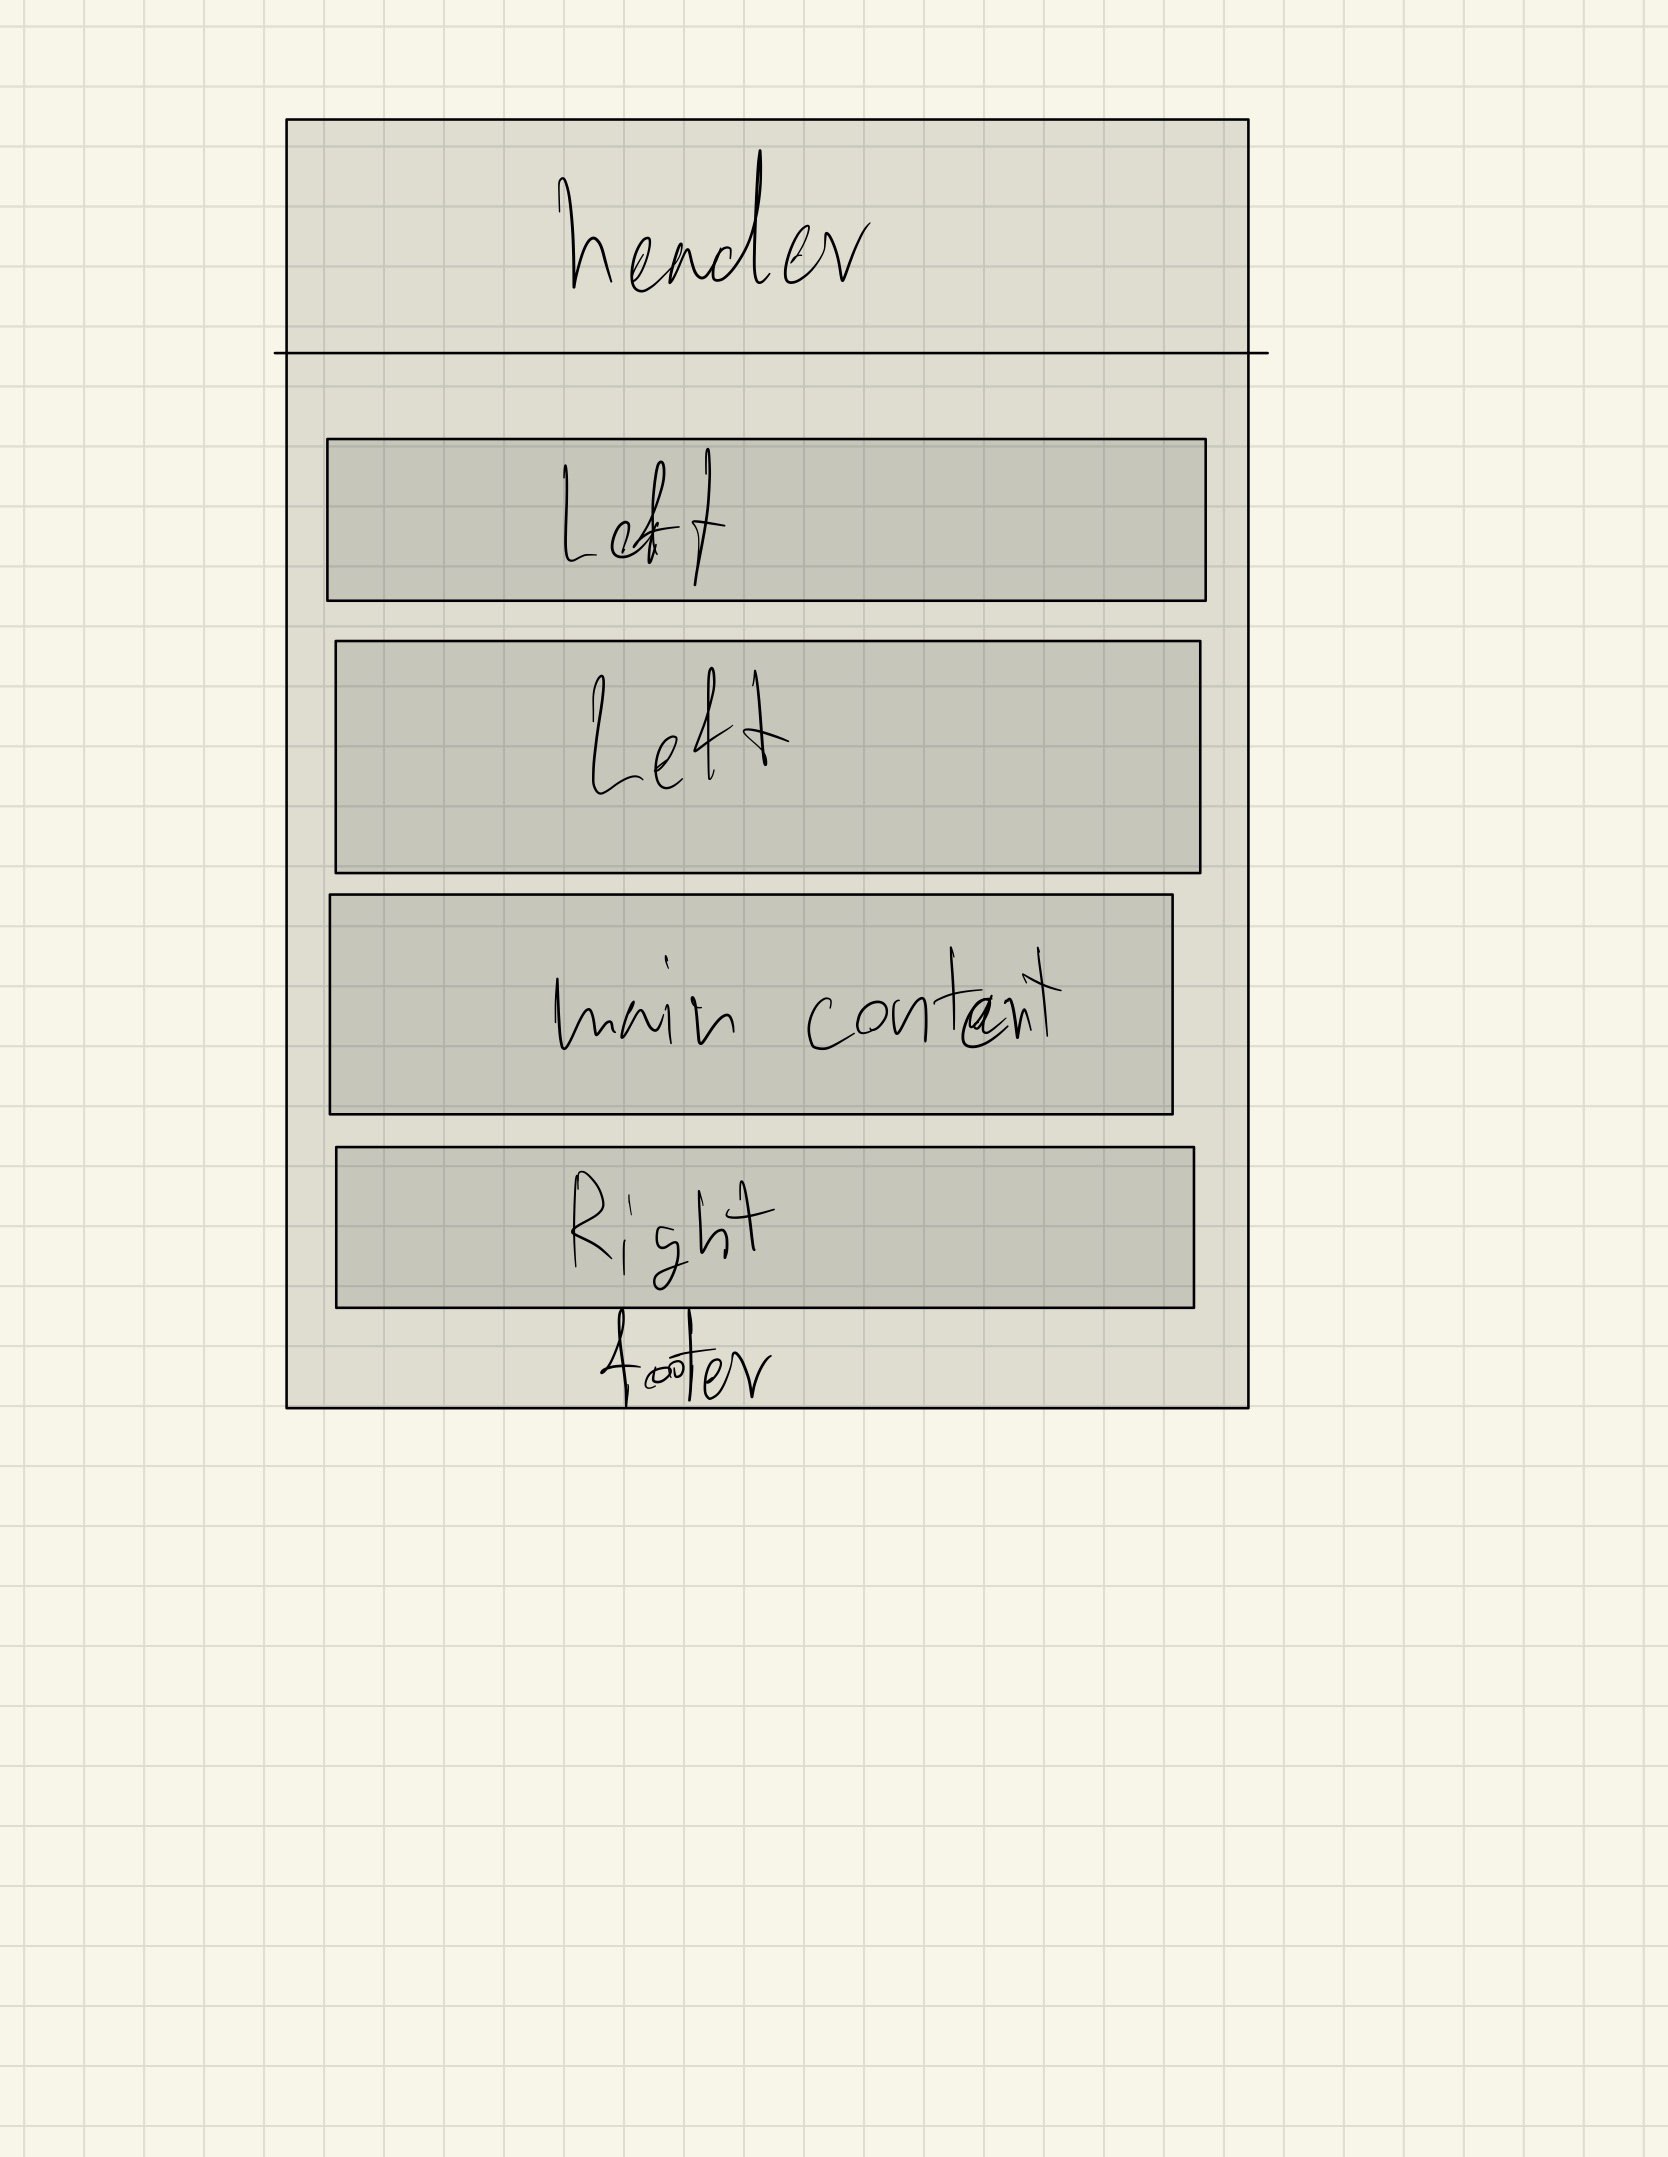 header
Left
Left
main content
Right
footer